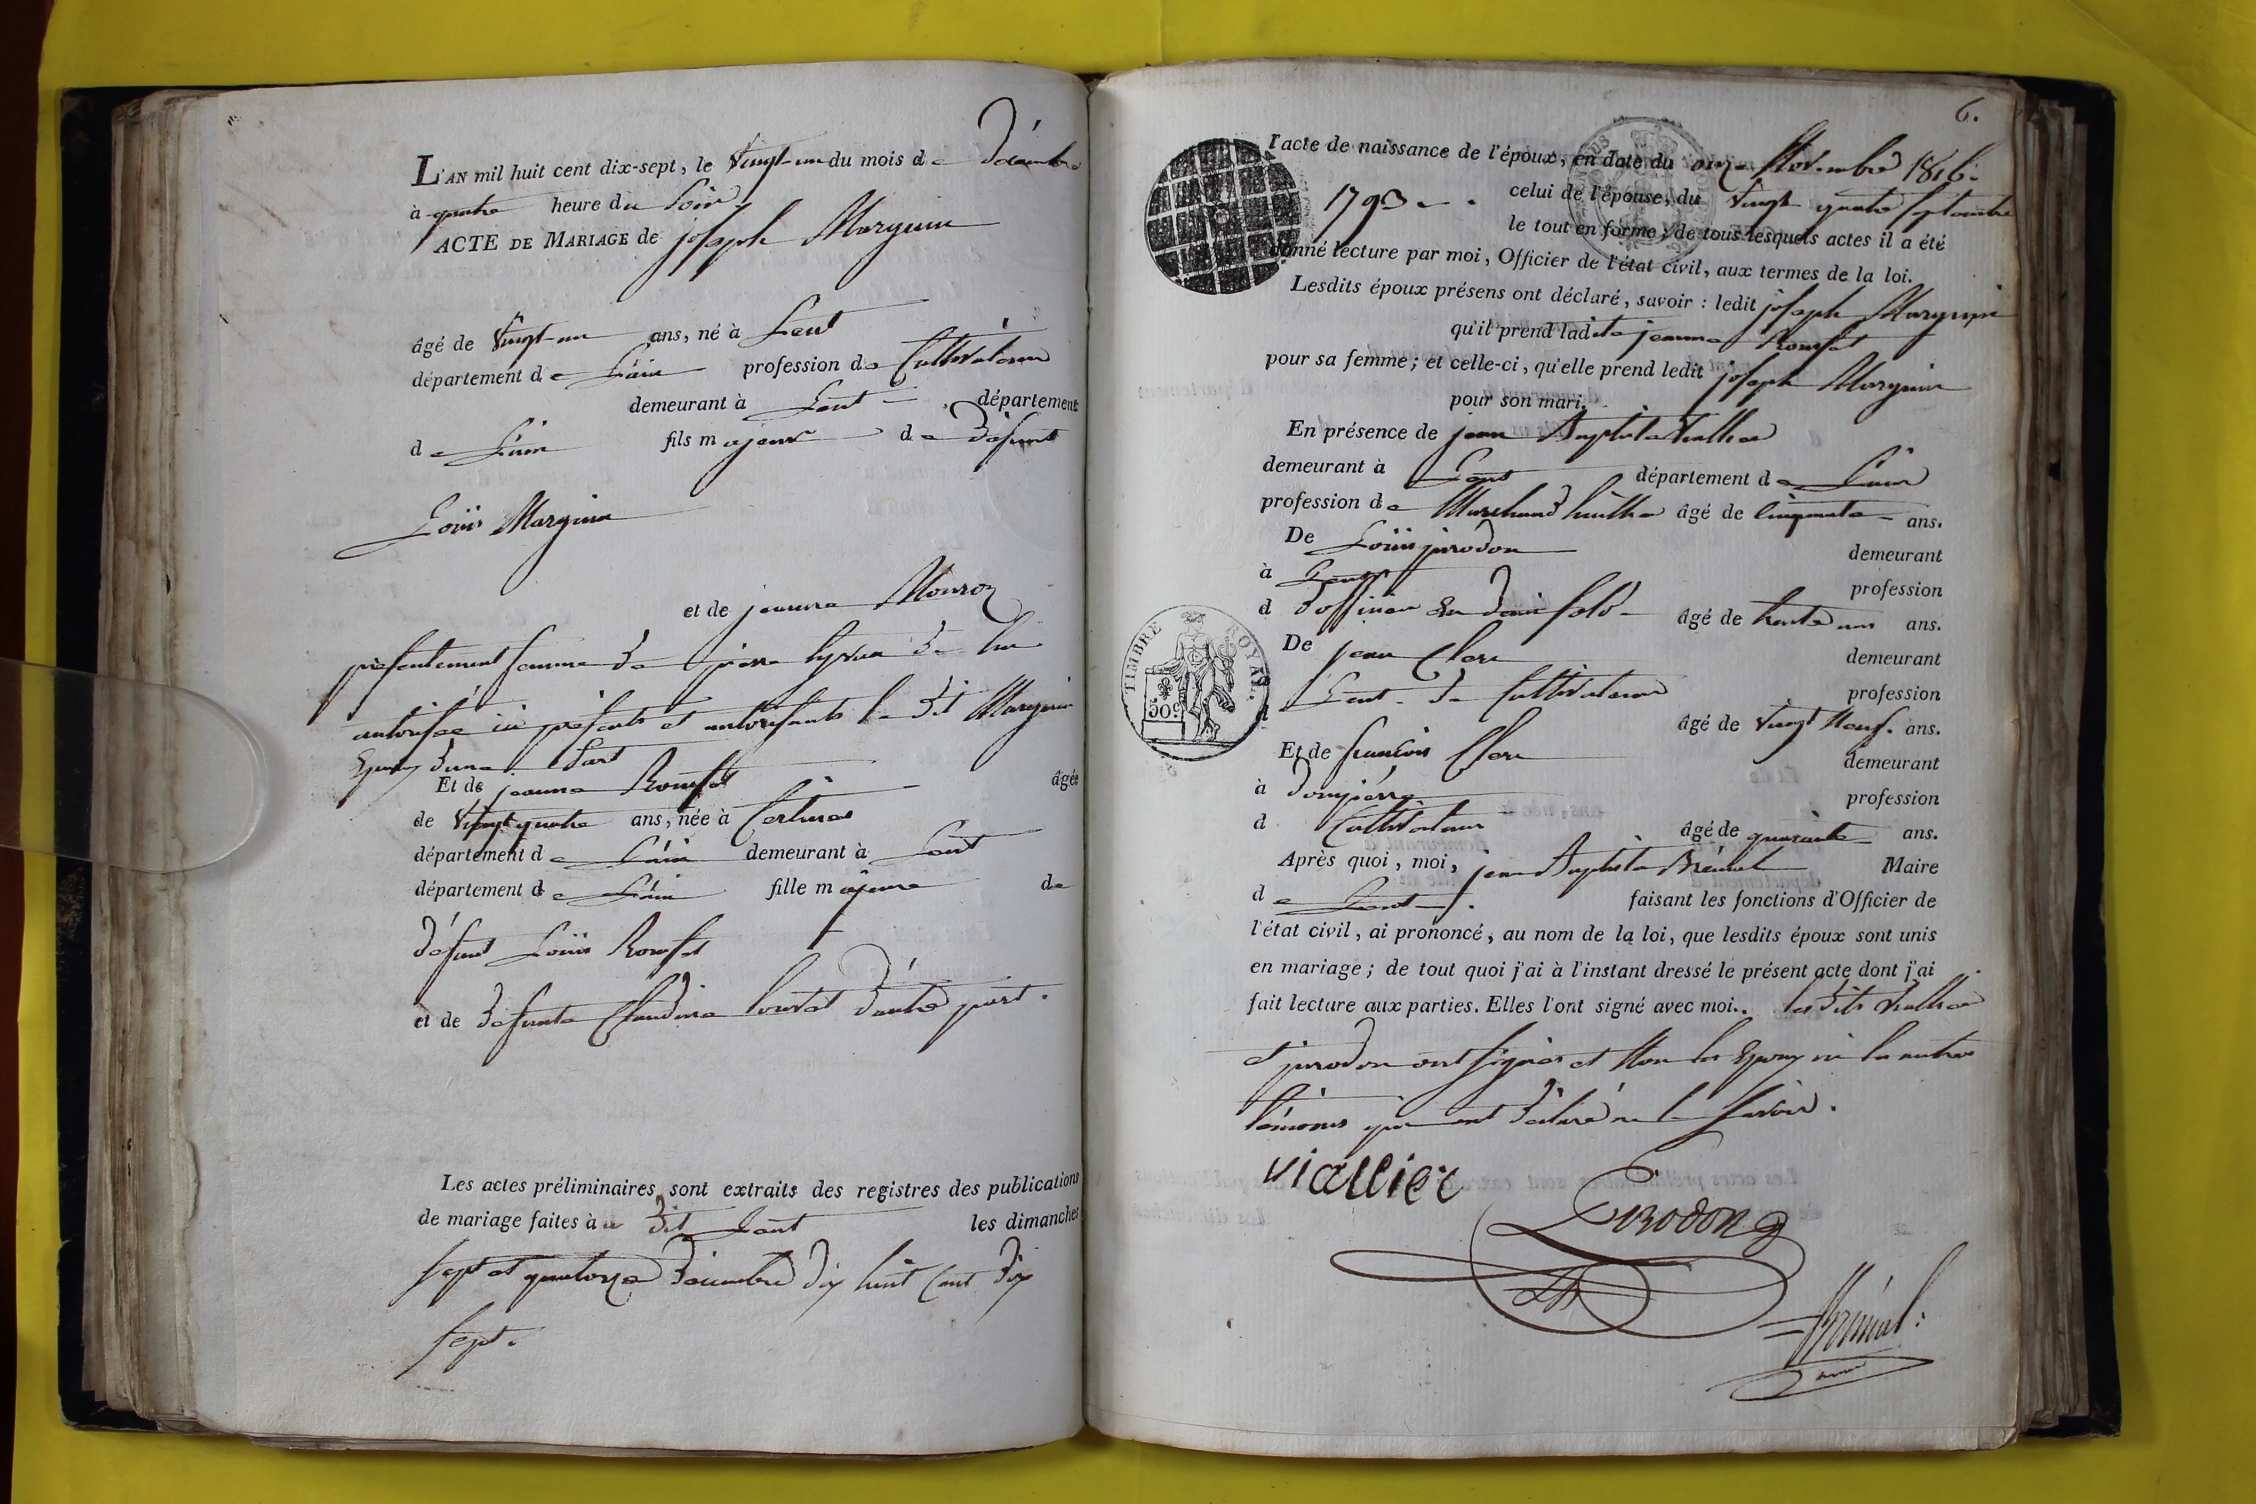 L'AN mil huit cent dix-sept, le vingt-un du mois de décembre
à quatre heure du soir
ACTE DE MARIAGE de joseph Marguin
âgé de vingt-un ans, né à Lent
département de L'ain profession de Cultivateur
demeurant à Lent département
de L'ain fils majeur de défunt
Loüis Marguin
et de jeanne Monroz
présentement femme de pierre de lui
autorisée ici présents et autorisants le dit Marguin
Epoux d'une part
Et de jeanne Rousset âgée
de vingt quatre ans, née à Certines
département de L'ain demeurant à Lent
département de L'ain fille majeure de
défunt Loüis Rousset
et de défunte Claudine d'autre part.
Les actes préliminaires sont extraits des registres des publications
de mariage faites à dit Lent les dimanches
sept et quatorze décembre dix huit cent dix
sept.
6.
l'acte de naissance de l'époux, en date du onze Novembre 1816.
celui de l'épouse, du vingt quatre septembre
1793
le tout en forme; de tous lesquels actes il a été
donné lecture par moi, Officier de l'état civil, aux termes de la loi.
Lesdits époux présens ont déclaré, savoir : ledit joseph Marguin
qu'il prend ladite jeanne Rousset
pour sa femme; et celle-ci, qu'elle prend ledit joseph Marguin
pour son mari.
En présence de jean Baptiste Viallier
demeurant à Lent département de L'ain
profession de Marchand âgé de cinquante ans.
De Loüis jirodon demeurant
à Lent profession
d âgé de trente un ans.
De jean Clerc demeurant
Lent de Cultivateur profession
TIMBRE ROYAL.
50c
âgé de vingt Neuf. ans.
Et de françois Clerc demeurant
à dompierre profession
d Cultivateur âgé de quarante ans.
Après quoi, moi, jean Baptiste Brémal Maire
de Lent faisant les fonctions d'Officier de
l'état civil, ai prononcé, au nom de la loi, que lesdits époux sont unis
en mariage; de tout quoi j'ai à l'instant dressé le présent acte dont j'ai
fait lecture aux parties. Elles l'ont signé avec moi. les dits Viallier
et jirodon ont signés et Non les Epoux ni les autres
témoins qui ont déclaré ne le savoir.
viallier